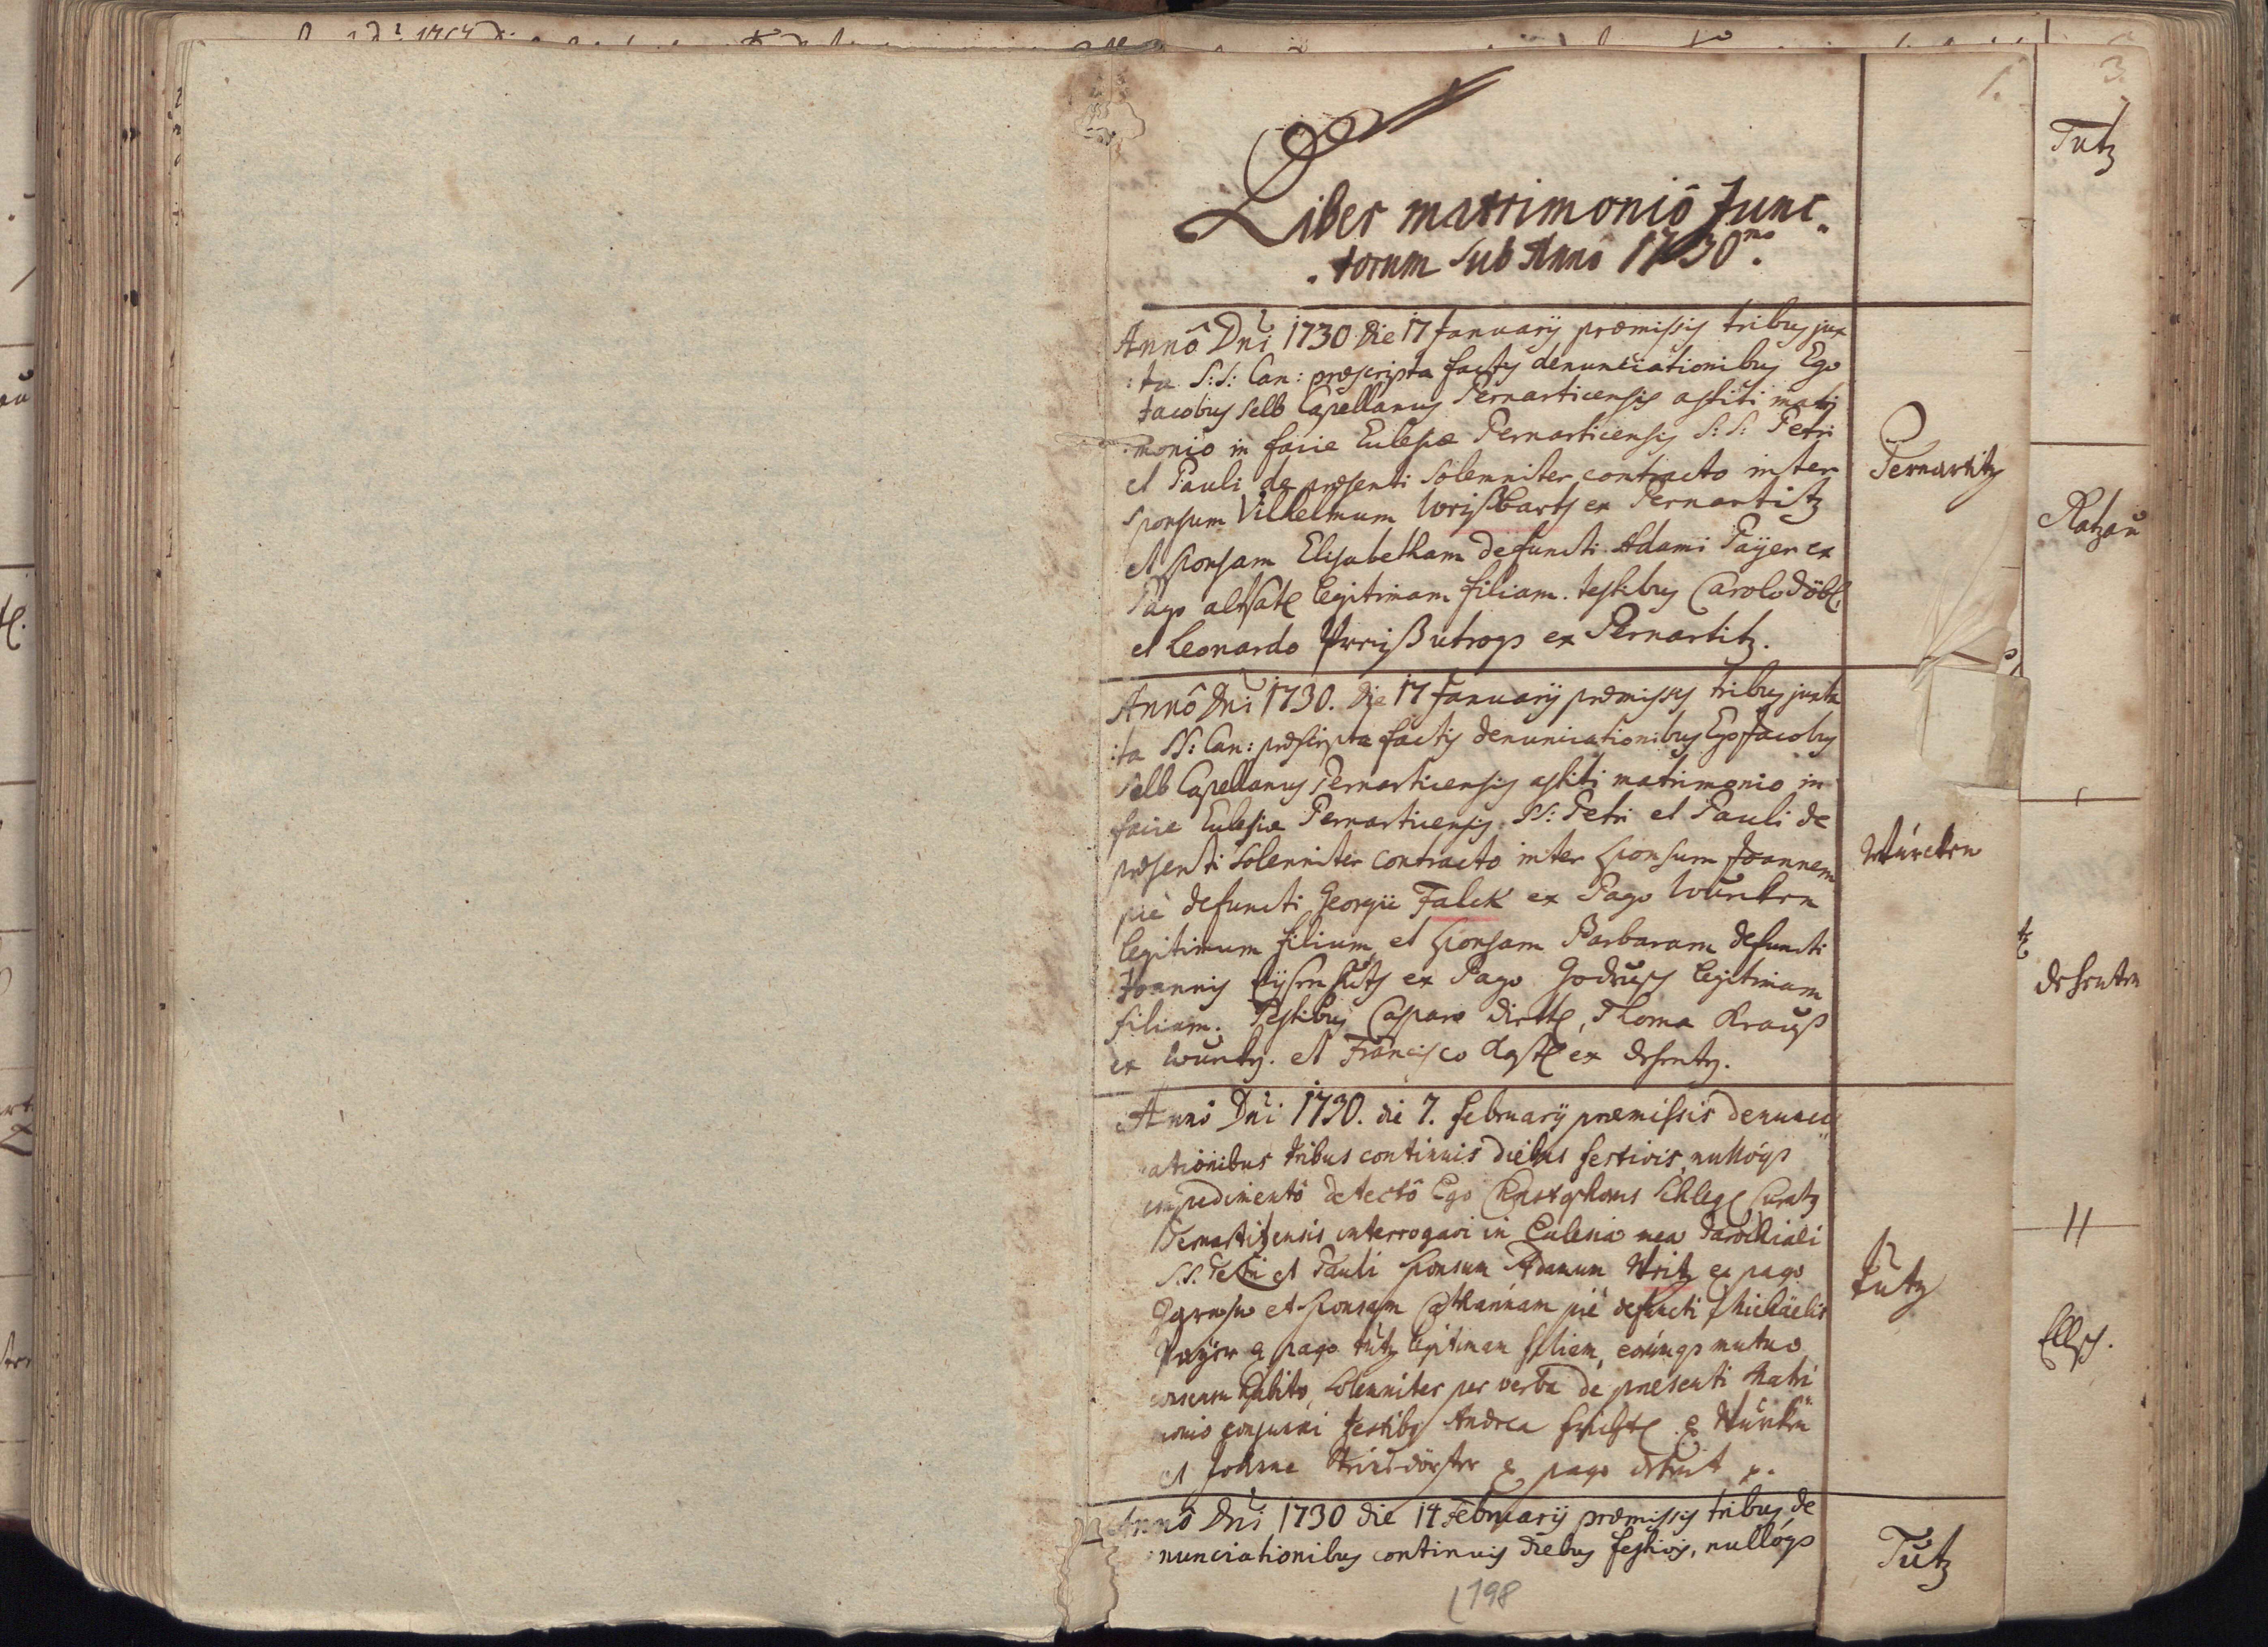 1.
Liber matrimoniô Junc
torum sub Annô 1730mo.
Annô Dni 1730 die 17 Januarij præmissis tribus jux
:ta S:S: Can: præscripta factis denunciationibus Ego
Jacobus Selb Capellanus Pernarticensis astiti matri
monio in facie Ecclesiæ Pernarticensis S:S: Petri
et Pauli de præsenti Solemniter contracto inter
sponsum Vilhelmum ex Pernartitz
et sponsam Elisabetham defuncti Adami Paÿer ex
Pago legitimam filiam. testibus Carolo Döbl,
et Leonardo utroqs ex Pernartitz.
Pernartitz
Annô Dni 1730. die 17 Januarij præmissis tribus juxta
:ta SS: Can: præscripta factis denunciationibus Ego Jacobus
Selb Capellanus Pernarticensis astiti matrimonio in
facie Ecclesiæ Pernarticensis SS: Petri et Pauli de
præsenti solenniter contracto inter sponsum Joannem
pié defuncti Georgii Falck ex Pago Wurcken
legitimum filium, et sponsam Barbaram defuncti
Joannis ex Pago Godrusch legitimam
filiam. Testibus Casparo Thoma Krauß
ex et Francisco ex
Wúrcken
Anno Dni 1730. die 7. februarij præmissis denunci
ationibus tribus continuis diebus festivis, nullóqs
impedimentô detectô Ego Christophorus Schlegl Curatus
Pernartitzensis interrogavi in Ecclesia mea Parochiali
S.S. Petri et Pauli sponsum Adamum ex pago
et sponsam Catharinam pié defuncti Michäelis
Paÿer ex pago tutz legitimam filiam, eorúmqs mutuo
consensu habito, solenniter per verba de præsenti Matri
monio conjunxi testibus Andrea ex Wúrcken
et Joanne ex pago
tutz
Annô Dni 1730 die 14 februarij præmissis tribus de
nunciationibus continuis diebus festivis, nullóqs
Tutz
198
3.
Tutz
Ratzau